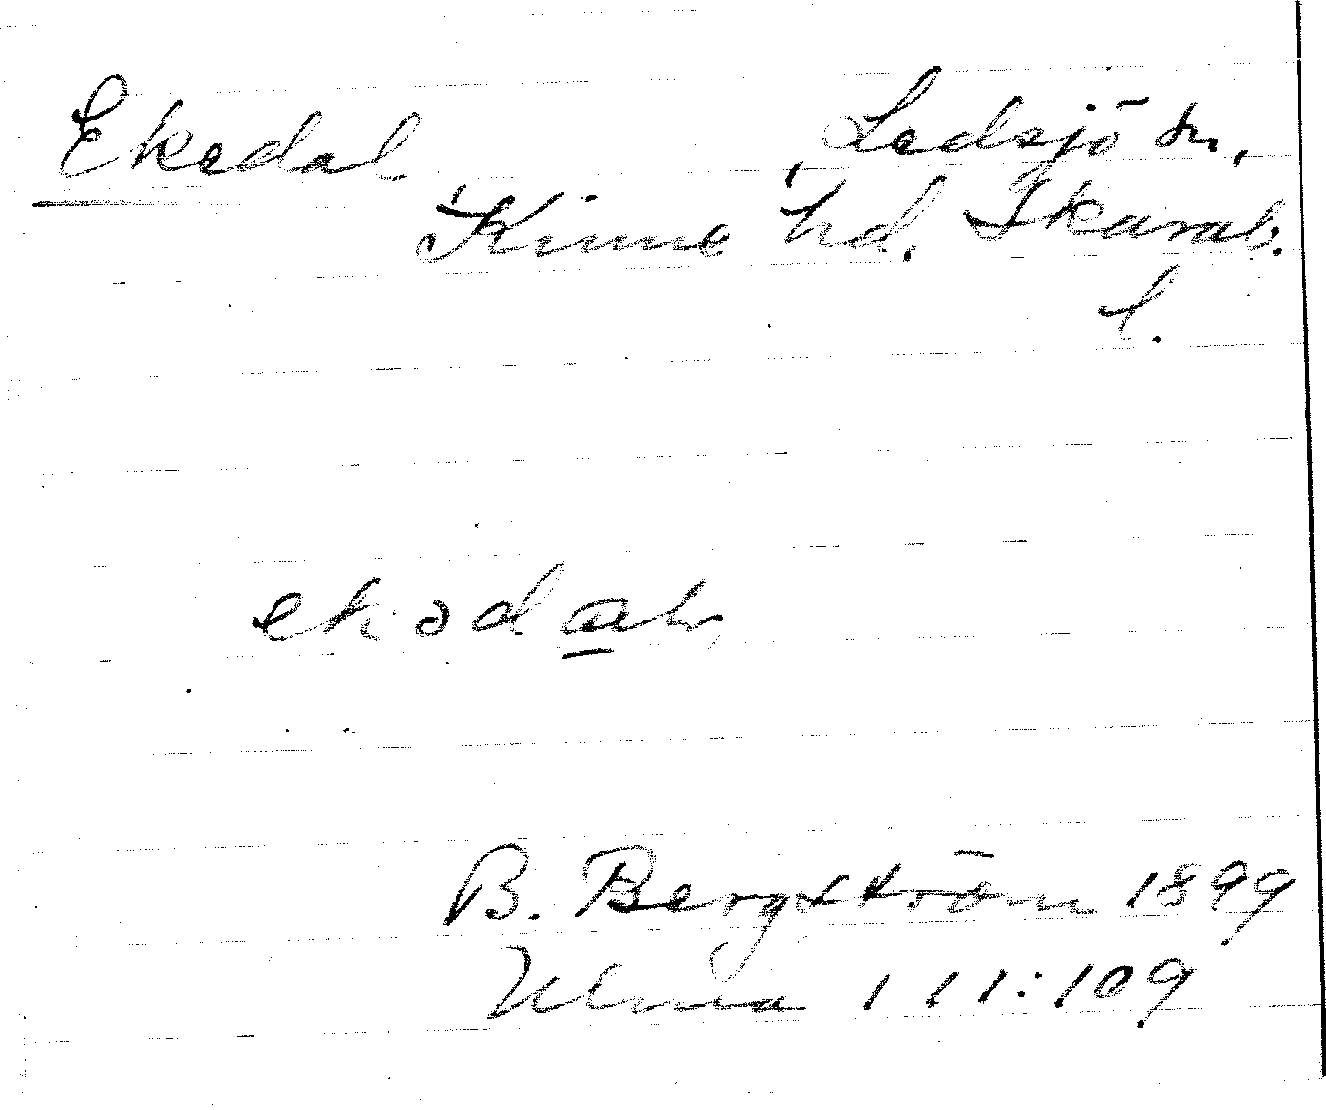 Ekedal Ledsjö sn,
Kinne hd. Skarab.
l.
ekədalʹ,
B. Bergström 1899
Ulma 111:109